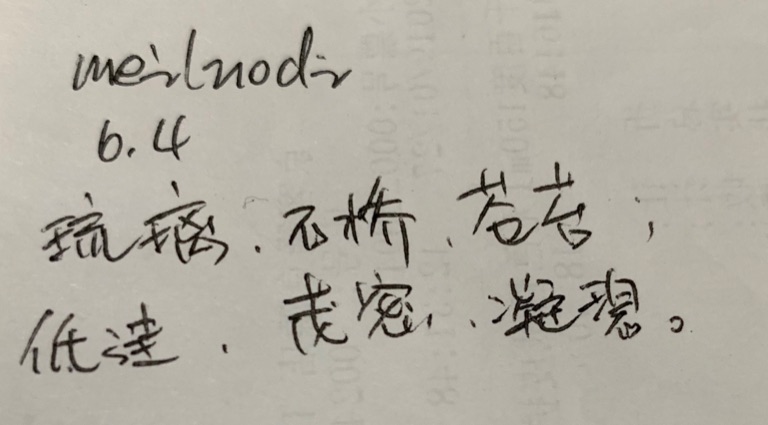 6.4
琉璃、石桥、苍苔；
低洼、茂密、凝望。